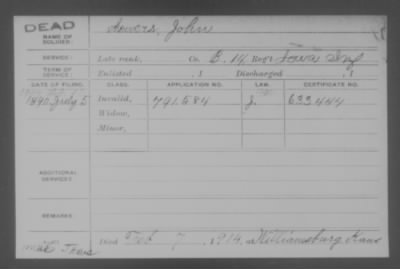 DEAD
NAME OF SOLDIER: Sowers, John
SERVICE: Late rank, Co. B. 14, Reg't Iowa Inf
TERM OF SERVICE: Enlisted , 1 Discharged , 1
DATE OF FILING. CLASS. APPLICATION NO. LAW. CERTIFICATE NO.
1890 July 5 Invalid, 791.584 J. 633.444
Widow,
Minor,
ADDITIONAL SERVICES:
REMARKS:
Died Feb 7, 1914, at Williamsburg Kans